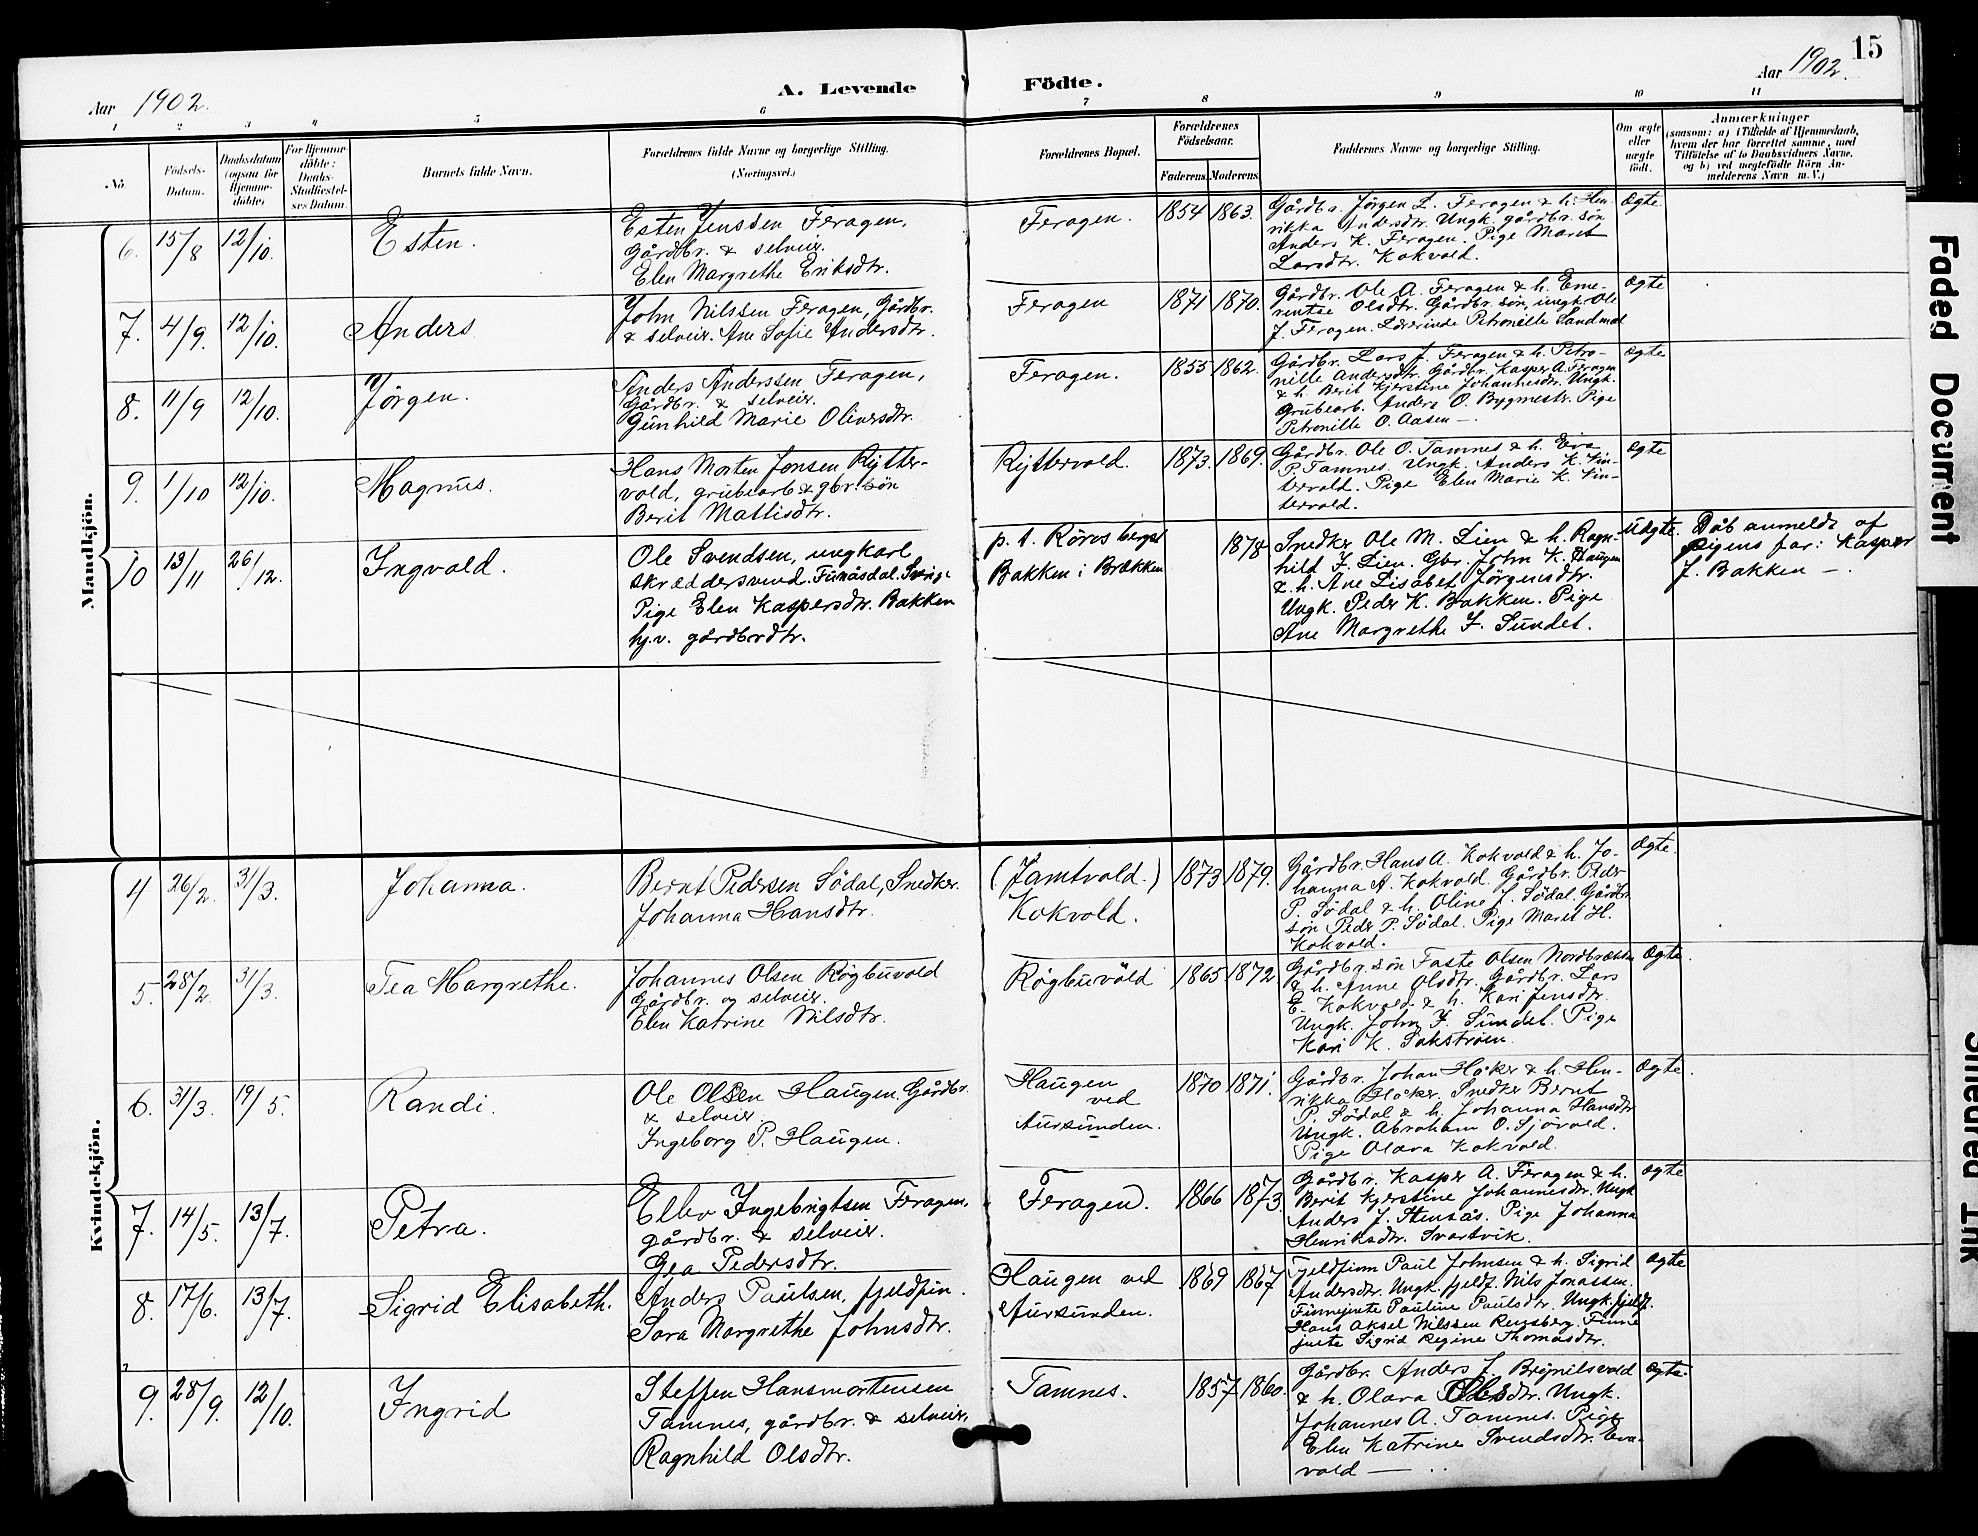 15
Aar 1902.
A. Levende Födte.
Aar 1902.
1 2 3 4 5 6 7 8 9 10 11
No.
Födsels-Datum.
Daabsdatum (ogsaa for Hjemme-döbte)
For Hjemme-döbte: Daabs-Stadfæstel-ses Datum.
Barnets fulde Navn.
Forældrenes fulde Navne og borgerlige Stilling.
(Næringsvei.)
Forældrenes Bopæl.
Forældrenes Födselsaar.
Faderens. Moderens.
Faddernes Navne og borgerlige Stilling.
Om ægte eller uægte födt.
Anmærkninger
(saasom: a) i Tilfælde af Hjemmedaab, hvem der har forrettet samme, med Tilföielse af to Daabsvidners Navne, og b) ved uægtefödte Börn An-melderens Navn m. V.)
Mandkjön.
6. 15/8 12/10. Esten.
Esten Jenssen Feragen,
Gårdbr. & selveier.
Elen Margrethe Eriksdtr.
Feragen. 1854 1863.
Gårdbr. Jørgen L. Feragen & h. Hen-
rikka Andersdtr. Ungk. gårdbr. søn
Anders K. Feragen. Pige Maret
Larsdtr. Kokvold.
Ægte
7. 4/9. 12/10. Anders
John Nilssen Feragen, Gårdbr.
& selveier. Ane Sofie Andersdtr.
Feragen 1871 1870.
Gårdbr. Ole A. Feragen & h. Eme-
rentse Olsdtr. Gårdbr. søn, ungk. Ole
J. Feragen. Lærerinde Petronille Sandmæl
Ægte
8. 11/9 12/10. Jørgen.
Anders Anderssen Feragen,
Gårdbr. & selveier.
Gunhild Marie Oliversdtr.
Feragen. 1855 1862.
Gårdbr. Lars J. Feragen & h. Petro-
nille Andersdtr. Gårdbr. Kasper A. Feragen
& h. Berit Kjerstine Johannesdtr. Ungk.
Grubearb. Anders O. Bygmestr. Pige
Petronille O. Aasen —
Ægte
9. 1/10 12/10. Magnus.
Hans Morten Jonsen Rytter-
vold, grubearb & gbr. søn
Berit Mattisdtr.
Ryttervold. 1873. 1869.
Gårdbr. Ole O. Tamnes & h. Eva
P. Tamnes. Ungk. Anders K. Vin-
tervold. Pige Elen Marie K. Vin-
tervold.
Ægte
10 13/11 26/12. Ingvald.
Ole Svendsen, ungkarl
skræddersvend. Funäsdal. Sverige
Pige Elen Kaspersdtr. Bakken
hj.v. gårdbrdtr.
p. t. Røros bergst
Bakken i Brækken
1878
Snedker Ole M. Lien & h. Ragn-
hild J. Lien. Gbr. John K. Haugen
& h. Ane Lisabet Jørgensdtr.
Ungk. Peder K. Bakken. Pige
Ane Margrethe J. Sundet.
Uægte.
Dåb anmeldt af
pigens far: Kasper
J. Bakken —.
Kvindekjön.
4 26/2. 31/3. Johanna.
Bernt Pedersen Södal, Snedker.
Johanna Hansdtr.
(Jamtvold.)
Kokvold.
1873 1879.
Gårdbr. Hans A. Kokvold & h. Jo-
hanna A. Kokvold. Gårdbr. Peder
P. Södal & h. Oline J. Södal. Gårdbr
søn Peder P. Södal. Pige Maret H.
Kokvold.
Ægte.
5. 28/2. 31/3. Tea Margrethe.
Johannes Olsen Røgbuvold
Gårdbr. og selveier.
Elen Katrine Nilsdtr.
Røgbuvold 1865 1872
Gårdbr. søn Faste Olsen Nordbrække
& h. Anne Olsdtr. Gårdbr. Lars
E. Kokvold & h. Kari Jensdtr.
Ungk. John J. Sundet. Pige
Kari K. Sakstrøen.
Ægte.
6. 31/3. 19/5. Randi.
Ole Olsen Haugen. Gårdbr.
& selveier.
Ingeborg P. Haugen.
Haugen
ved
Aursunden.
1870 1871.
Gårdbr. Johan Høker & h. Hen-
rikka Høker. Snedker Bernt
P. Södal & h. Johanna Hansdtr
Ungk. Abraham O. Sjövold.
Pige Olava Kokvold.
Ægte.
7. 14/5. 13/7. Petra.
Ellev Ingebrigtsen Feragen,
gårdbr. & selveier.
Gea Pedersdtr.
Feragen. 1866 1873.
Gårdbr. Kasper A. Feragen & h.
Berit Kjerstine Johannesdtr. Ungk
Anders J. Stensås. Pige Johanna
Henriksdtr. Svartvik.
Ægte
8. 17/6. 13/7. Sigrid Elisabeth.
Anders Paulsen, fjeldfin.
Sara Margrethe Johnsdtr.
Haugen ved
Aursunden.
1869 1867
Fjeldfinn Paul Johnsen & h. Sigrid
Andersdtr. Ungk. fjeldf. Nils Jonassen.
Finnejente Pauline Paulsdtr. Ungk. fjeldf.
Hans Aksel Nilssen Rensberg. Finne
jente Sigrid Regine Thomasdtr.
Ægte
9. 28/9. 12/10. Ingrid
Steffen Hansmortensen
Tamnes, gårdbr. & selveier,
Ragnhild Olsdtr.
Tamnes. 1857 1860.
Gårdbr. Anders J. Brynilsvold
& h. Olava Olsdtr. Ungk.
Johannes A. Tamnes. Pige
Elen Katrine Svendsdtr. Eva-
vold —
Ægte.
Faded Document
Smeared Ink